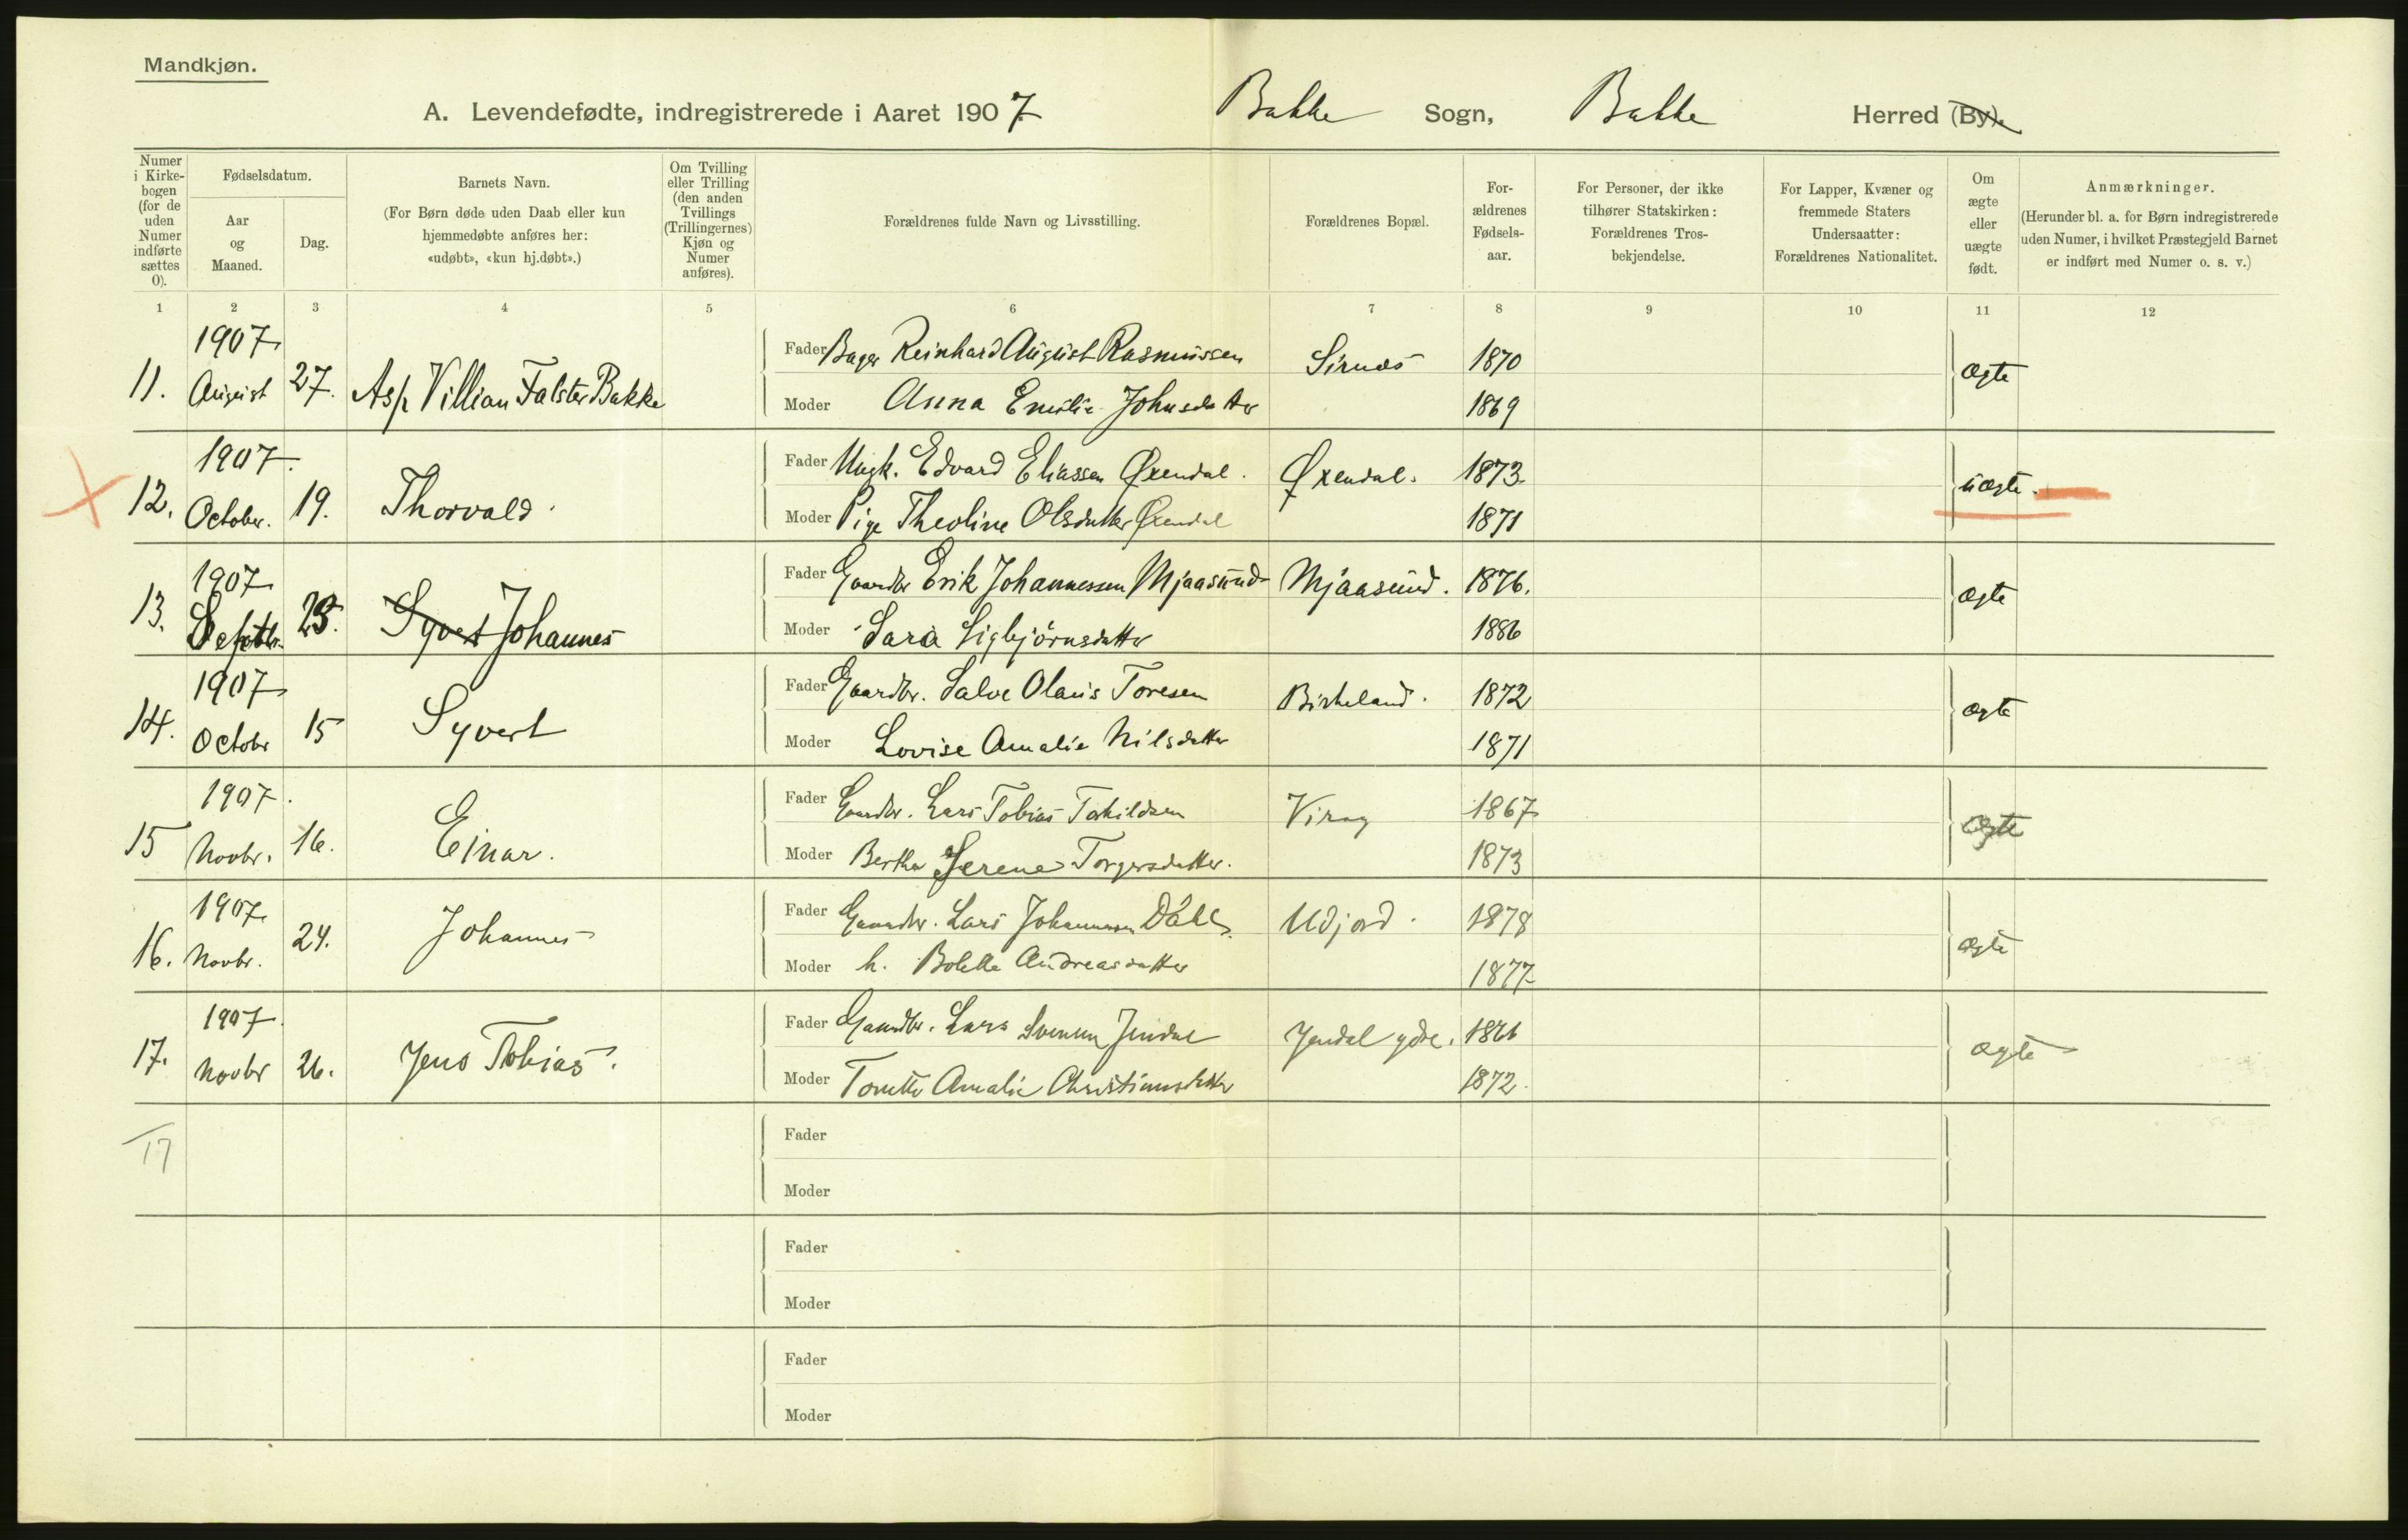 Mandkjøn.
A. Levendefødte, indregistrerede i Aaret 1907 Bakke Sogn, Bakke Herred (By).
Numer i Kirkebogen (for de uden Numer indførte sættes 0).
Fødselsdatum.
Aar og Maaned.
Dag.
Barnets Navn.
(For Børn døde uden Daab eller kun hjemmedøbte anføres her: «udøbt», «kun hj.døbt».)
Om Tvilling eller Trilling (den anden Tvillings (Trillingernes) Kjøn og Numer anføres).
Forældrenes fulde Navn og Livsstilling.
Forældrenes Bopæl.
Forældrenes Fødselsaar.
For Personer, der ikke tilhører Statskirken: Forældrenes Trosbekjendelse.
For Lapper, Kvæner og fremmede Staters Undersaatter: Forældrenes Nationalitet.
Om ægte eller uægte født.
Anmærkninger.
(Herunder bl. a. for Børn indregistrerede uden Numer, i hvilket Præstegjeld Barnet er indført med Numer o. s. v.)
1 2 3 4 5 6 7 8 9 10 11 12
11. 1907 August 27. Asp Villian Falster Bakke Fader Bager Reinhard August Rasmussen Sirnæs 1870 ægte
Moder Anna Emilie Johnsdatter 1869
12. 1907. October. 19. Thorvald. Fader Ungk. Edvard Eliassen Øxendal. Øxendal. 1873. uægte.
Moder Pige Theoline Olsdatter Øxendal 1871
13. 1907 Septbr. Syvert Johannes Fader Gaardbr Erik Johannessen Mjaasund Mjaasund. 1876. ægte
Moder Sara Sigbjörnsdatter 1886
14. 1907 Octobr 15 Syvert Fader Gaardbr. Salve Olaus Toresen Birkeland. 1872 ægte
Moder Lovise Amalie Nilsdatter 1871
15 1907. Novbr. 16. Einar. Fader Gaardbr. Lars Tobias Tarkildsen Virag 1867 ægte
Moder Bertha Serene Torgersdatter. 1873
16. 1907. Novbr. 24. Johannes Fader Gaardbr. Lars Johannesen Dahl Udjord. 1878 ægte
Moder h. Bolette Andreasdatter 1877
17. 1907. Novbr 26. Jens Tobias. Fader Gaardbr. Lars Svensen Jendal Jendal ydre. ægte
Moder Tonette Amalie Christiansdatter 1872.
17 Fader
Moder
Fader
Moder
Fader
Moder